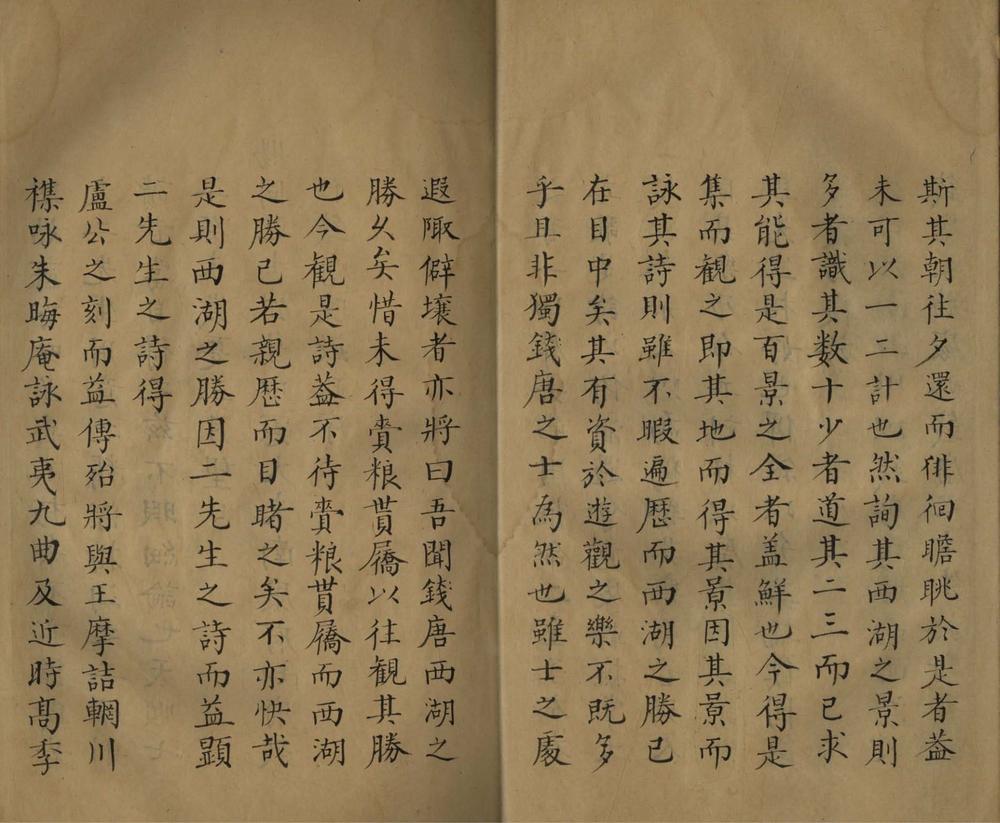 斯其朝往夕還而徘徊瞻眺於是者葢
未可以一二計也然詢其西湖之景則
多者識其数十少者道其二三而已求
其能得是百景之全者盖鮮也今得是
集而観之即其地而得其景因其景而
詠其詩則雖不暇遍歴而西湖之勝已
在目中矣其有資於遊觀之樂不既多
乎且非獨錢唐之士為然也雖士之處
遐陬僻壤者亦將曰吾聞錢唐西湖之
勝久矣惜未得賫粮貰屩以往観其勝
也今観是詩葢不待賫粮貰屩而西湖
之勝已若親歴而目睹之矣不亦快哉
是則西湖之勝因二先生之詩而益顕
二先生之詩得
盧公之刻而益傳殆將與王摩詰輞川
襍咏朱晦庵詠武夷九曲及近時髙季